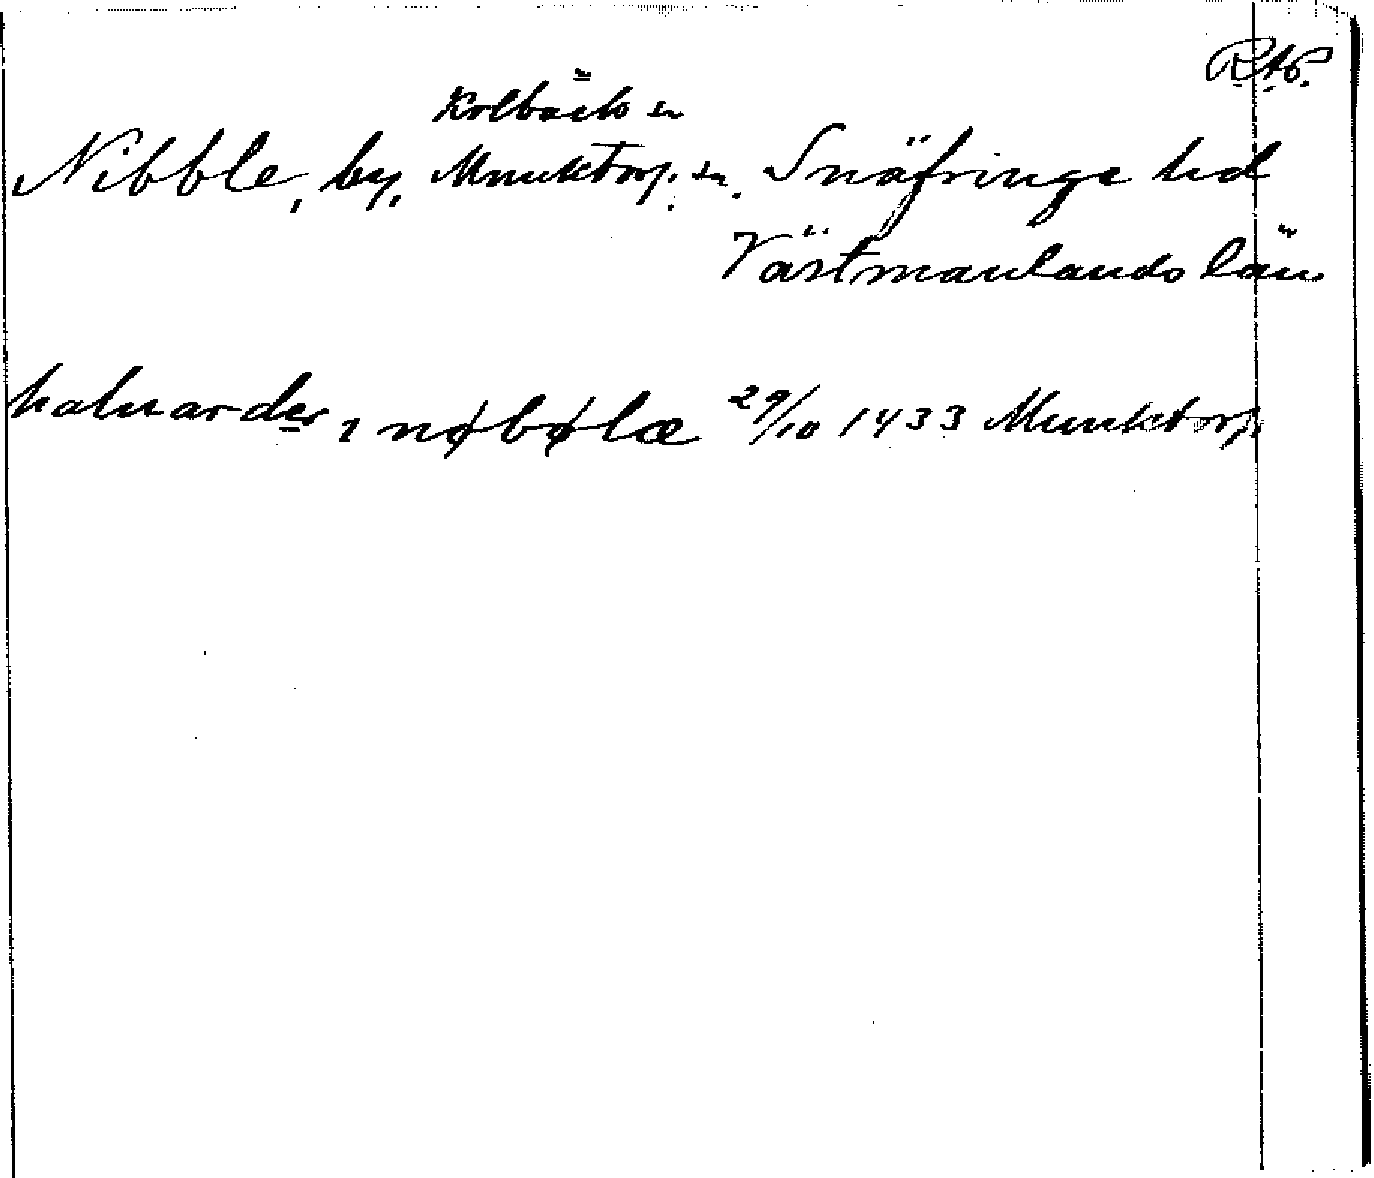 RAP.
Kolbäck sn
Nibble, by, Munktorp. sn. Snäfringe hd
Västmanlands län
haluarder ı nøbølæ 29/10 1433 Munktorp